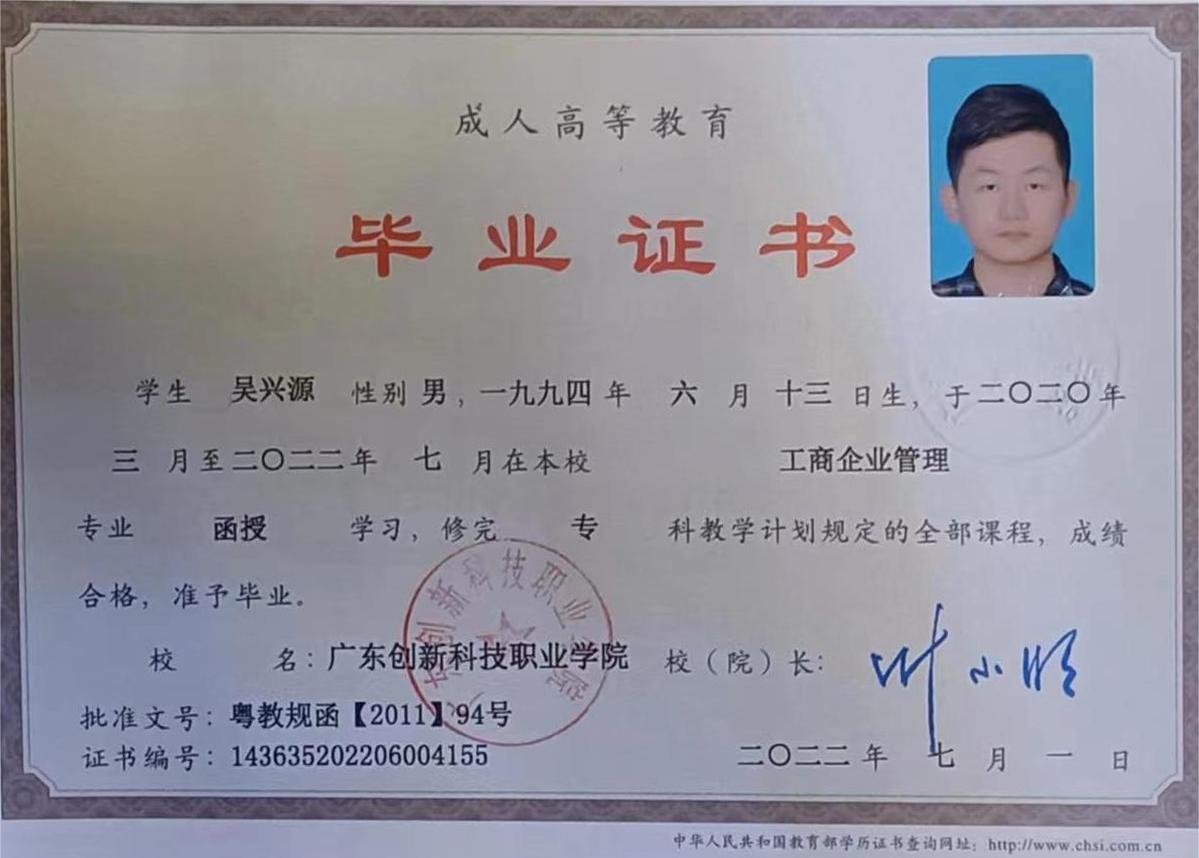 成人高等教育
毕业证书
学生 吴兴源 性别 男，一九九四 年 六 月 十三 日生，于 二〇二〇 年
三 月至 二〇二二 年 七 月在本校 工商企业管理
专业 函授 学习，修完 专 科教学计划规定的全部课程，成绩
合格，准予毕业。
校 名：广东创新科技职业学院 校（院）长：
批准文号：粤教规函【2011】94号
证书编号：143635202206004155 二〇二二 年 七 月 一 日
中华人民共和国教育部学历证书查询网址：http://www.chsi.com.cn